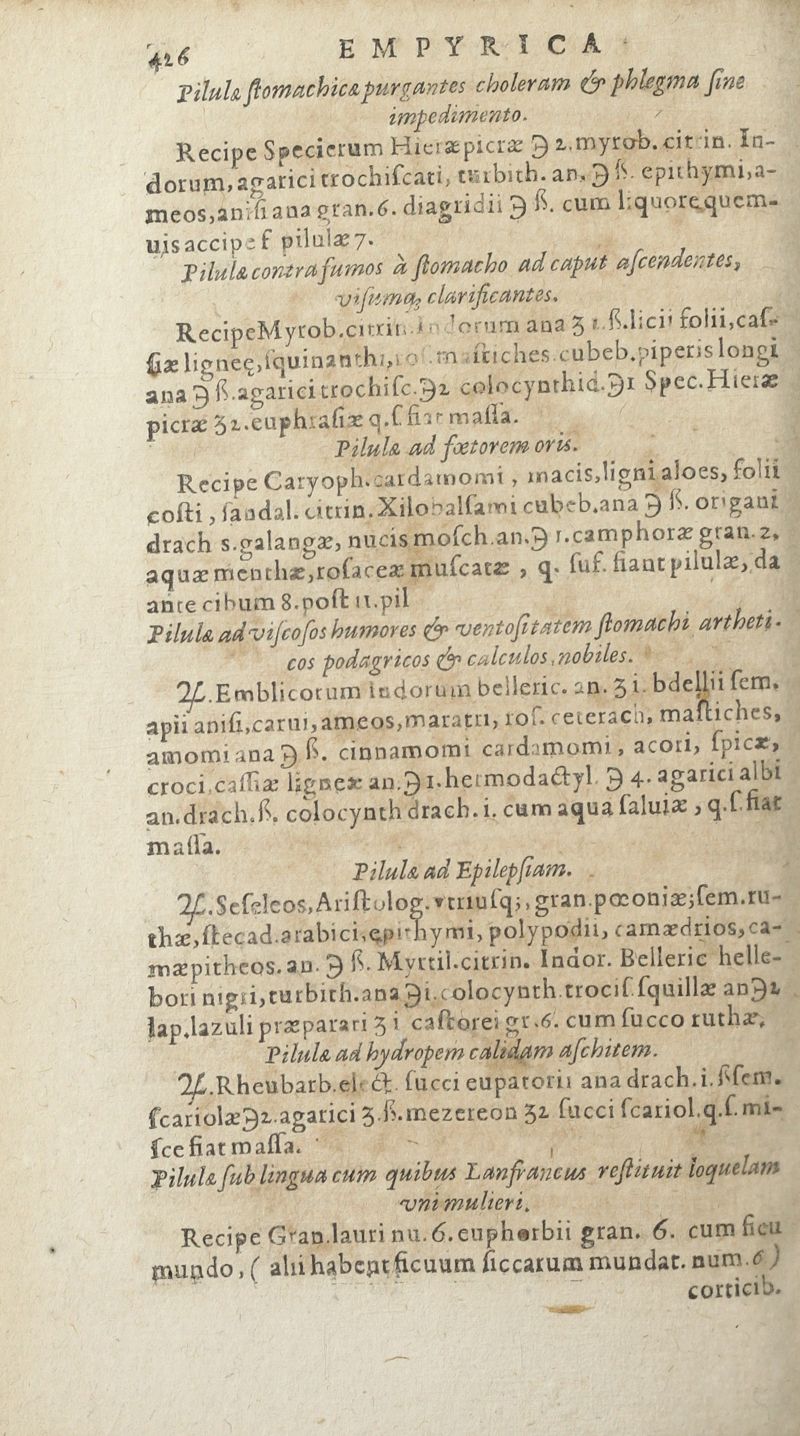 426 EMPYRICA
Pilulæ ſtomachicæ purgantes choleram & phlegma ſine
impedimento.
Recipe Specierum Hieræpicræ ℈ 2.myrob.citrin. In-
dorum, agarici trochiſcati, turbith. an. ℈ ß. epithymi,a-
meos,aniſi ana gran.6. diagridii ℈ ß. cum liquore quem-
uis accipe f pilulæ 7.
Pilulæ contra fumos à ſtomacho ad caput aſcendentes,
viſumq; clarificantes.
Recipe Myrob.citrin. Indorum ana ʒ 1.ß. folii,caſ-
ſiæ ligneę,ſquinanthi, cubeb.piperis longi
ana ℈ ß.agarici trochiſc.℈2 colocynthid.℈1 Spec.Hieræ
picræ ʒ2.euphraſiæ q.ſ.fiat maſſa.
Pilulæ ad fœtorem oris.
Recipe Caryoph.cardamomi, macis,ligni aloes, folii
coſti, ſandal. citrin. Xilobalſami cubeb.ana ℈ ß. origani
drach s.galangæ, nucis moſch.an.℈ 1.camphoræ gran.2.
aquæ menthæ,roſaceæ muſcatæ , q. ſuf. fiant pilulæ, da
ante cibum 8.poſt 11.pil
Pilulæ ad viſcoſos humores & ventoſitatem ſtomachi artheti-
cos podagricos & calculos,nobiles.
♃.Emblicorum indorum belleric. an. ʒ i. bdellii ſem.
apii aniſi,carui,ameos,maratri, roſ. ceterach, maſtiches,
amomi ana ℈ ß. cinnamomi cardamomi, acori, ſpicæ,
croci,caſſiæ ligneæ an.℈ 1.hermodactyl. ℈ 4. agarici albi
an.drach.ß. colocynth drach. i. cum aqua ſaluiæ , q.ſ.fiat
maſſa.
Pilulæ ad Epilepſiam.
♃.Seſeleos,Ariſtolog.vtriuſq;,gran.pœoniæ;ſem.ru-
thæ,ſtecad.arabici,epithymi, polypodii, camædrios,ca-
mæpitheos.an. ℈ ß. Myrtil.citrin. Indor. Belleric helle-
bori nigri,turbith.ana ℈i.colocynth.trociſ.ſquillæ an℈2
lap.lazuli præparati ʒ i caſtorei gr.6. cum ſucco ruthæ,
Pilulæ ad hydropem calidam aſchitem.
♃.Rheubarb.elect. ſucci eupatorii ana drach.i.ß ſem.
ſcariolæ℈2.agarici ʒ.ß.mezereon ʒ2 ſucci ſcariol.q.ſ.mi-
ſce fiat maſſa.
Pilulæ ſub lingua cum quibus Lanfrancus reſtituit loquelam
vni mulieri.
Recipe Gran.lauri nu.6.euphorbii gran. 6. cum ficu
mundo, ( alii habent ficuum ſiccarum mundat. num.6 )
corticib.